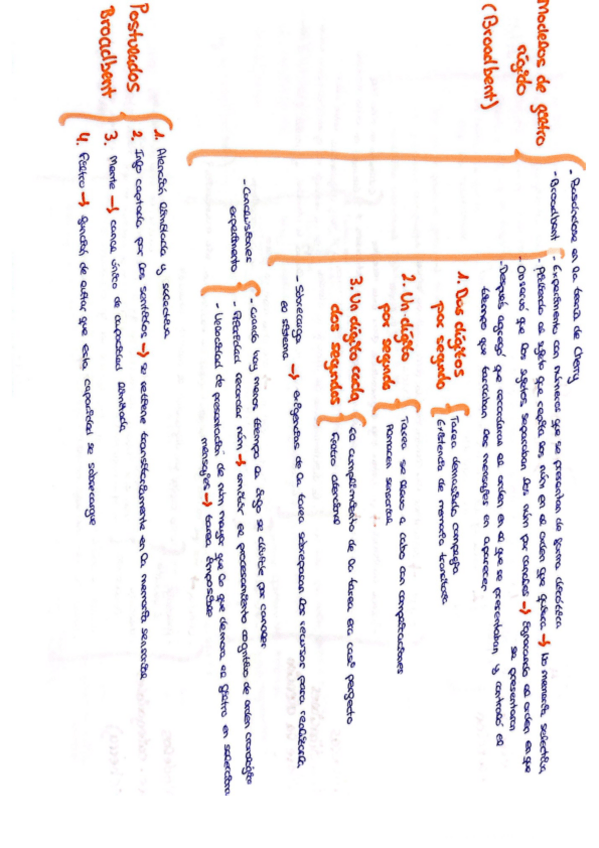 Modelos de filtro
rígido
(Broadbent)
- Basándose en la teoría de Cherry
- Broadbent
- Experimento con números que se presentan de forma dicótica
- Pidiendo al sujeto que repita los núm en el orden que quiera → No memoria selectiva
- Observó que los sujetos separaban los núm por canales → Ignorando el orden en que
se presentaron
- Después agregó que recordaran el orden en el que se presentaban y controló el
tiempo que tardaban los mensajes en aparecer
1. Dos dígitos
por segundo
Tarea demasiado compleja
Existencia de memoria transitoria
2. Un dígito
por segundo
Tarea se llevó a cabo con complicaciones
Almacén sensorial
3. Un dígito cada
dos segundos
El cumplimiento de la tarea era casi perfecto
Filtro atencional
- Sobrecarga
en sistema
→ exigencias de la tarea sobrepasan los recursos para realizarla
- Conclusiones
experimento
- Cuando hay menos tiempo la info se clasifica por canales
- Prioridad recordar núm → omitir el procesamiento cognitivo de orden cronológico
- Velocidad de presentación de núm mayor que lo que demora el filtro en seleccionar
mensajes → tarea imposible
Postulados
Broadbent
1. Atención limitada y selectiva
2. Info captada por los sentidos → se retiene transitoriamente en la memoria sensorial
3. Mente → canal único de capacidad limitada
4. Filtro → función de evitar que esta capacidad se sobrecargue